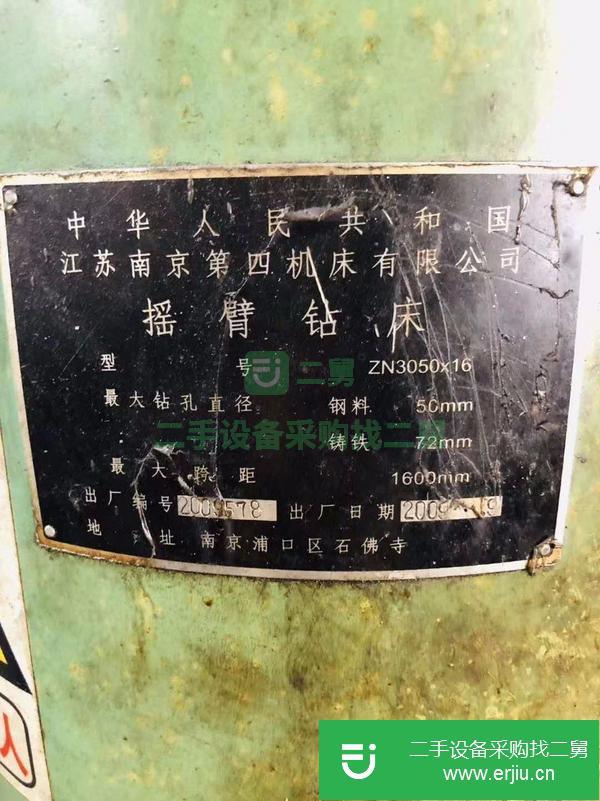 中华人民共和国
江苏南京第四机床有限公司
摇臂钻床
型号 ZN3050x16
二舅
最大钻孔直径 钢料 50mm
二手设备采购找二舅
铸铁 72mm
最大跨距 1600mm
出厂编号 2009578 出厂日期 2009
地址 南京浦口区石佛寺
人
二手设备采购找二舅
www.erjiu.cn